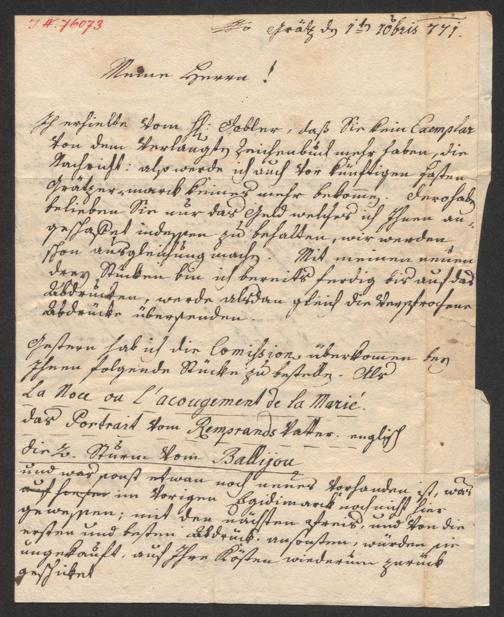 I.N. 76073
Grätz den 1ten 10bris 771.
Meine Herrn!
Ich erhielte vom H: Gabler, daß Sie kein Exemplar
von dem verlangten Zeichenbuch mehr haben, die
Nachricht: also werde ich auch vor künftigen Fasten
Grätzer-marck keines mehr bekommen. Derohalben
belieben Sie nur das Geld welches ich Ihnen an-
geschaffet indessen zu behalten, wir werden
schon ausgleichung machen. Mit meinen neuen
drey Stücken bin ich bereits ferdig bis auf das
Abdrücken, werde alsdan gleich die versprochene
Abdrücke übersenden.
Gestern hab ich die Comission überkomen bey
Ihnen folgende Stücke zu bestellen. Als
La Noce ou l'acougement de la Marié.
das Portrait vom Remprands Vatter. englisch
die Sturm vom Ballijou
und was sonst etwan noch neues vorhanden ist, was
im vorigen Egidimarck noch nicht hier
gewessen; mit den nächsten preis, und von die
ersten und besten Abdruck. ansonsten, würden sie
ungekauft, auf Ihre Kösten wiederum zurück
geschicket